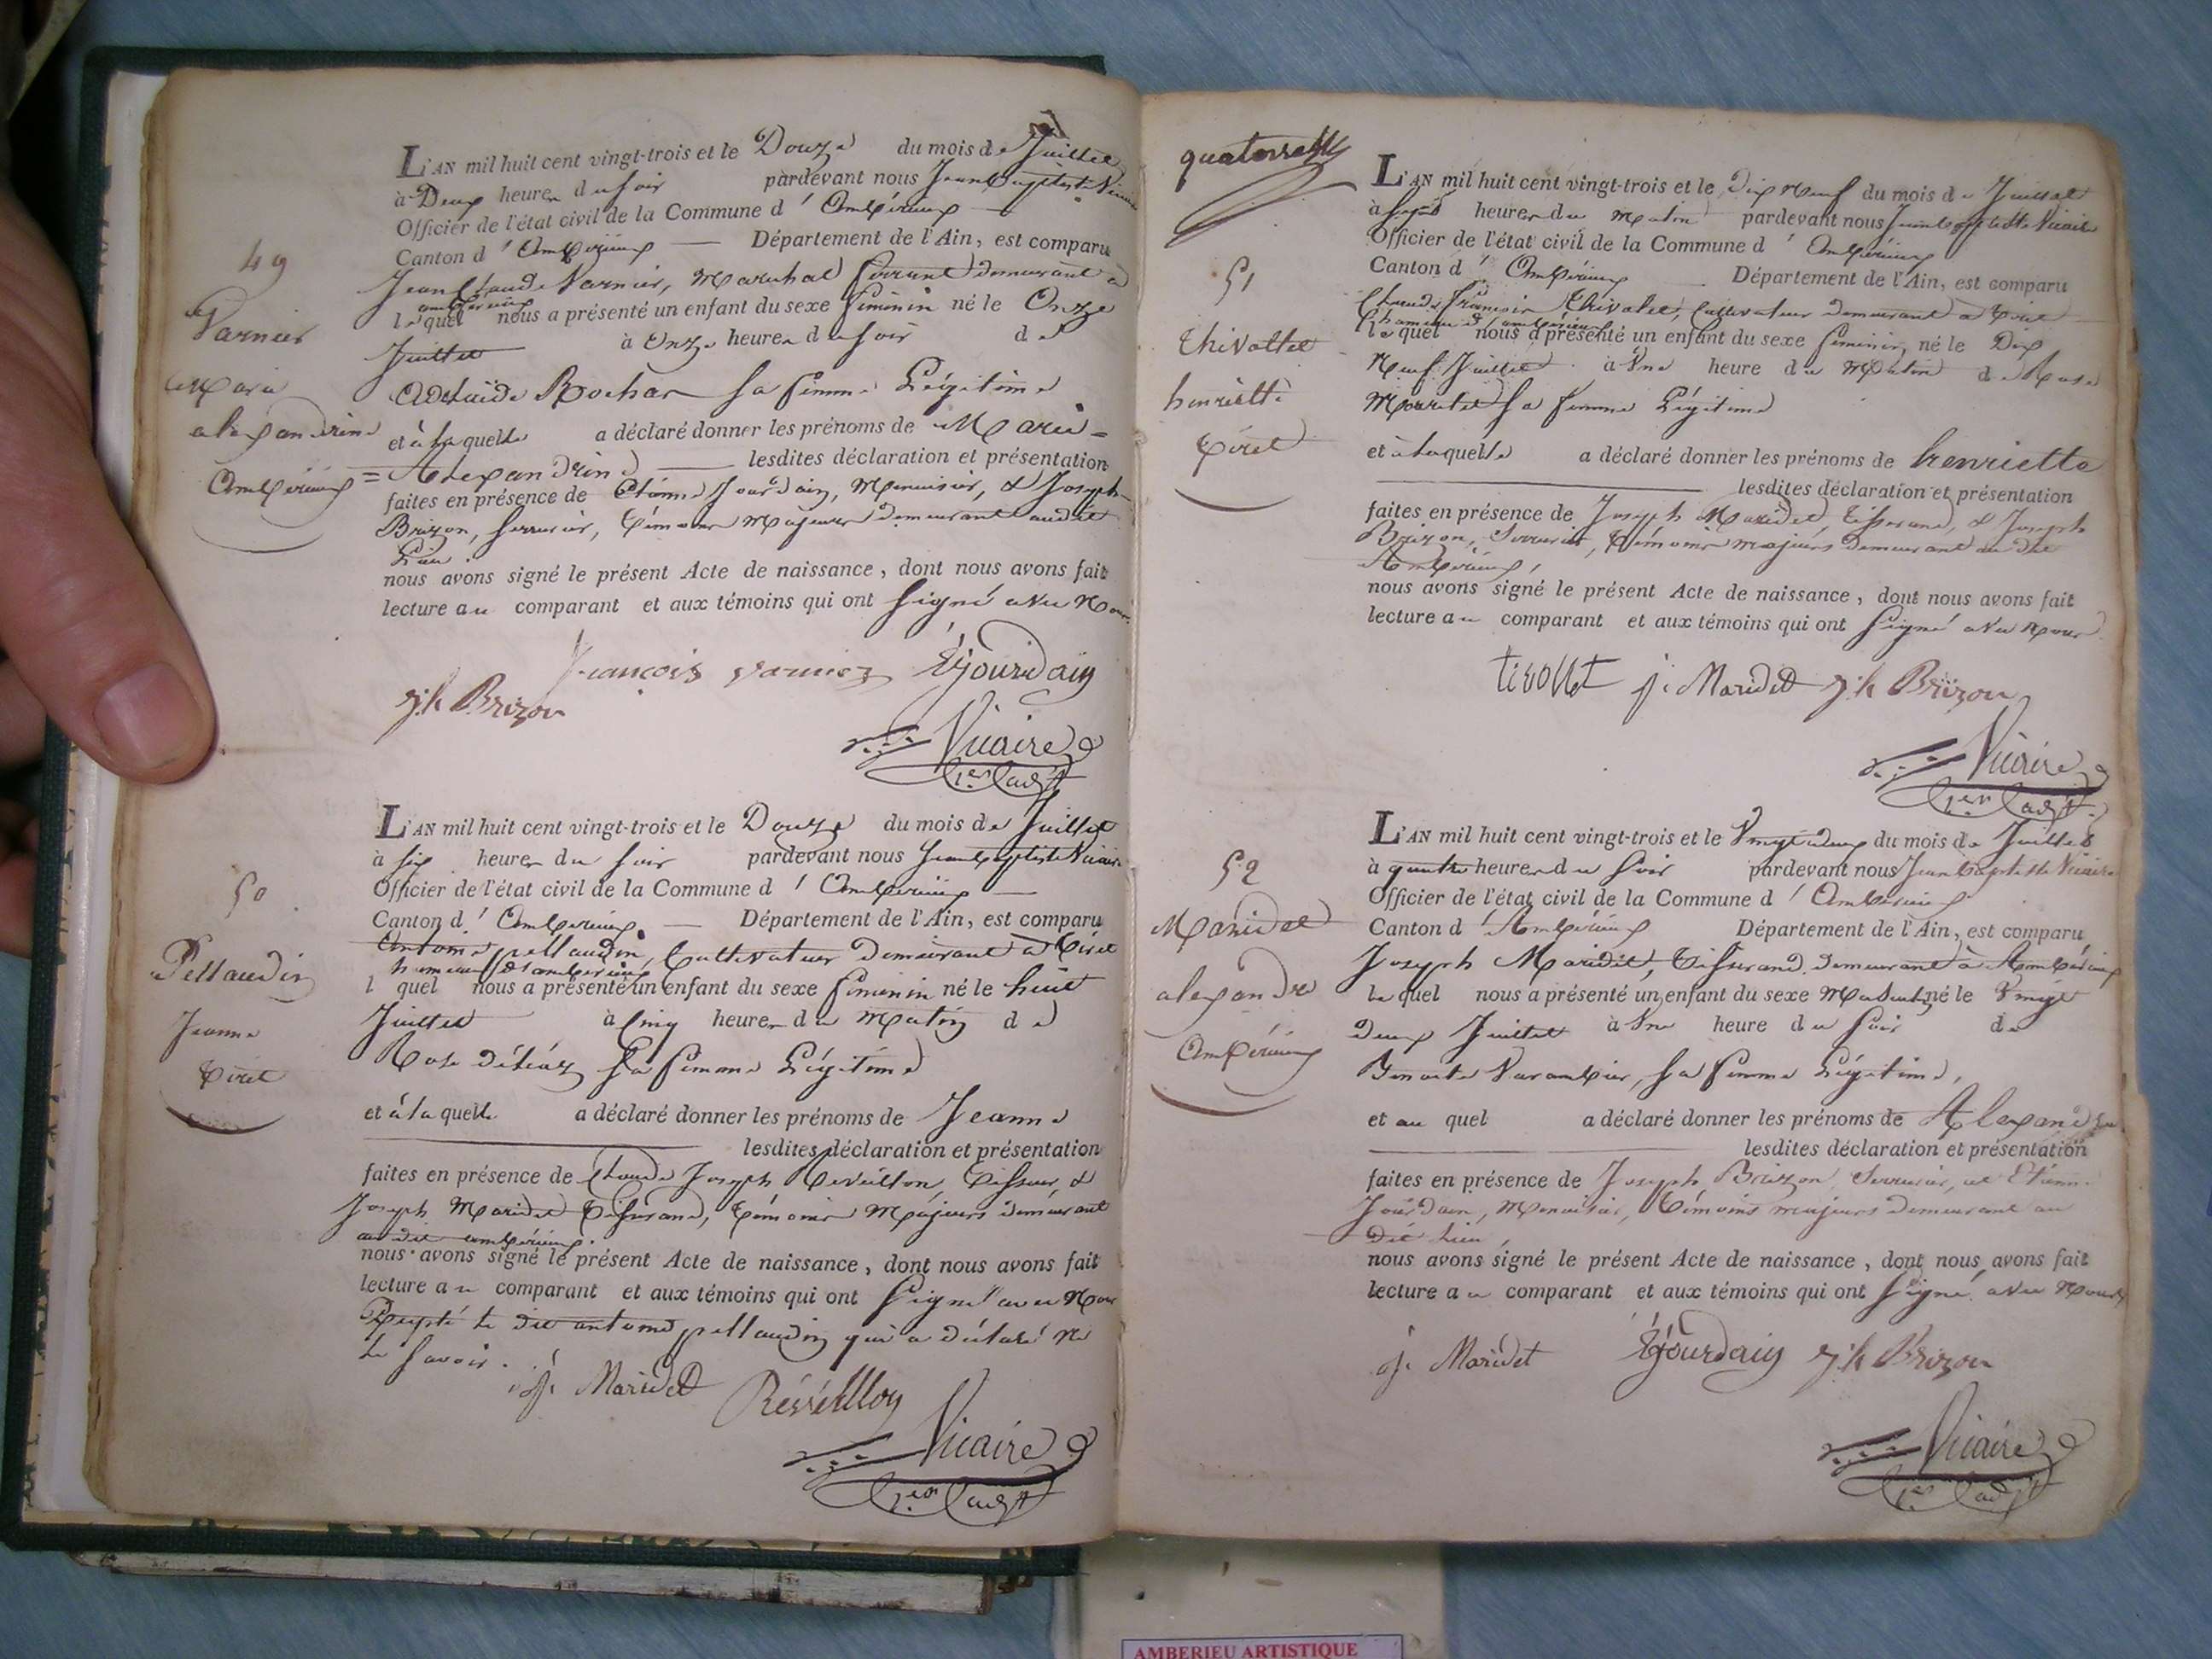 L'AN mil huit cent vingt-trois et le Douze du mois de Juillet
à Deux heures du soir pardevant nous Jean Baptiste Vicaire
Officier de l'état civil de la Commune d' Ambérieux
Canton d' Ambérieux Département de l'Ain, est comparu
Jean Claude Varnier, Marechal ferrant demeurant à
ambérieux
lequel nous a présenté un enfant du sexe féminin né le Onze
Juillet à Onze heures du soir de
Adelaïde Rochas sa femme Légitime
et à laquelle a déclaré donner les prénoms de Marie=
=Alexandrine lesdites déclaration et présentation
faites en présence de Etienne Jourdain, Menuisier, & Joseph
Brizon, serrurier, témoins Majeurs demeurant audit
Lieu.
nous avons signé le présent Acte de naissance, dont nous avons fait
lecture au comparant et aux témoins qui ont signé avec Nous
françois varnier EJourdain
Jh Brizon
Vicaire
1er adjt
49
Varnier
Marie
alexandrine
Ambérieux
L'AN mil huit cent vingt-trois et le Douze du mois de Juillet
à six heures du soir pardevant nous Jean Baptiste Vicaire
Officier de l'état civil de la Commune d' Ambérieux
Canton d' Ambérieux Département de l'Ain, est comparu
Antoine pellaudin, Cultivateur demeurant à Tiret
hameau d'ambérieux
l quel nous a présenté un enfant du sexe féminin né le huit
Juillet à Cinq heures du Matin de
Rose sa femme Légitime
et à laquelle a déclaré donner les prénoms de Jeanne
lesdites déclaration et présentation
faites en présence de Claude Joseph Reveillon, &
Joseph Maridet Tisserand, témoins Majeurs demeurant
au dit ambérieux.
nous avons signé le présent Acte de naissance, dont nous avons fait
lecture au comparant et aux témoins qui ont signé avec Nous
Excepté le dit antoine pellaudin qui a déclaré ne
le savoir.
j. Maridet Révéilloy
Vicaire
1er adjt
50
Pellaudin
Jeanne
Tiret
quatorze
L'AN mil huit cent vingt-trois et le Dix Neuf du mois de Juillet
à sept heures du Matin pardevant nous Jean Baptiste Vicaire
Officier de l'état civil de la Commune d' Ambérieux
Canton d' Ambérieux Département de l'Ain, est comparu
Claude françois Thivollet, Cultivateur demeurant à Tiret
hameau d'ambérieux
lequel nous a présenté un enfant du sexe féminin né le Dix
Neuf Juillet à Une heure du Matin de Rose
sa femme Légitime
et à laquelle a déclaré donner les prénoms de henriette
lesdites déclaration et présentation
faites en présence de Joseph Maridet, tisserand, & Joseph
Brizon, Serrurier, témoins majeurs demeurant au dit
Ambérieux,
nous avons signé le présent Acte de naissance, dont nous avons fait
lecture au comparant et aux témoins qui ont signé avec Nous
tivollet j. Maridet Jh Brizon
Vicaire
1er adjt
51
Thivollet
henriette
Tiret
L'AN mil huit cent vingt-trois et le Vingt deux du mois de Juillet
à quatre heures du soir pardevant nous Jean Baptiste Vicaire
Officier de l'état civil de la Commune d' Ambérieux
Canton d' Ambérieux Département de l'Ain, est comparu
Joseph Maridet, Tisserand demeurant à Ambérieux
lequel nous a présenté un enfant du sexe Masculin né le Vingt
deux Juillet à Une heure du soir de
Benoite Varambier, sa femme Légitime,
et au quel a déclaré donner les prénoms de Alexandre
lesdites déclaration et présentation
faites en présence de Joseph Brizon, Serrurier, et Etienne
Jourdain, Menuisier, témoins majeurs demeurant au
dit lieu,
nous avons signé le présent Acte de naissance, dont nous avons fait
lecture au comparant et aux témoins qui ont signé avec Nous
j. Maridet EJourdain Jh Brizon
Vicaire
1er adjt
52
Maridet
alexandre
Ambérieux
AMBERIEU ARTISTIQUE